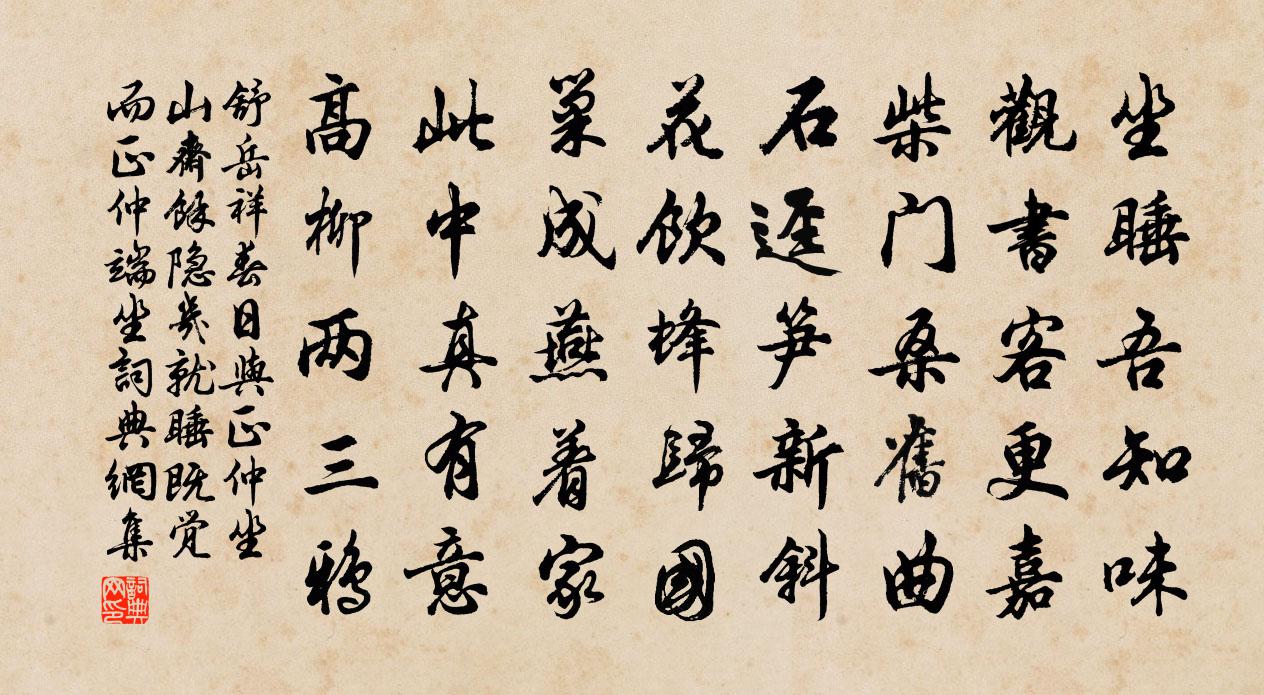 坐睡吾知味
觀書客更嘉
柴門桑舊曲
石迳笋新斜
花飲蜂歸國
巢成燕着家
此中真有意
高柳两三鴉
舒岳祥春日與正仲坐
山齋余隐几就睡既觉
而正仲端坐詞典網集
詞典网印